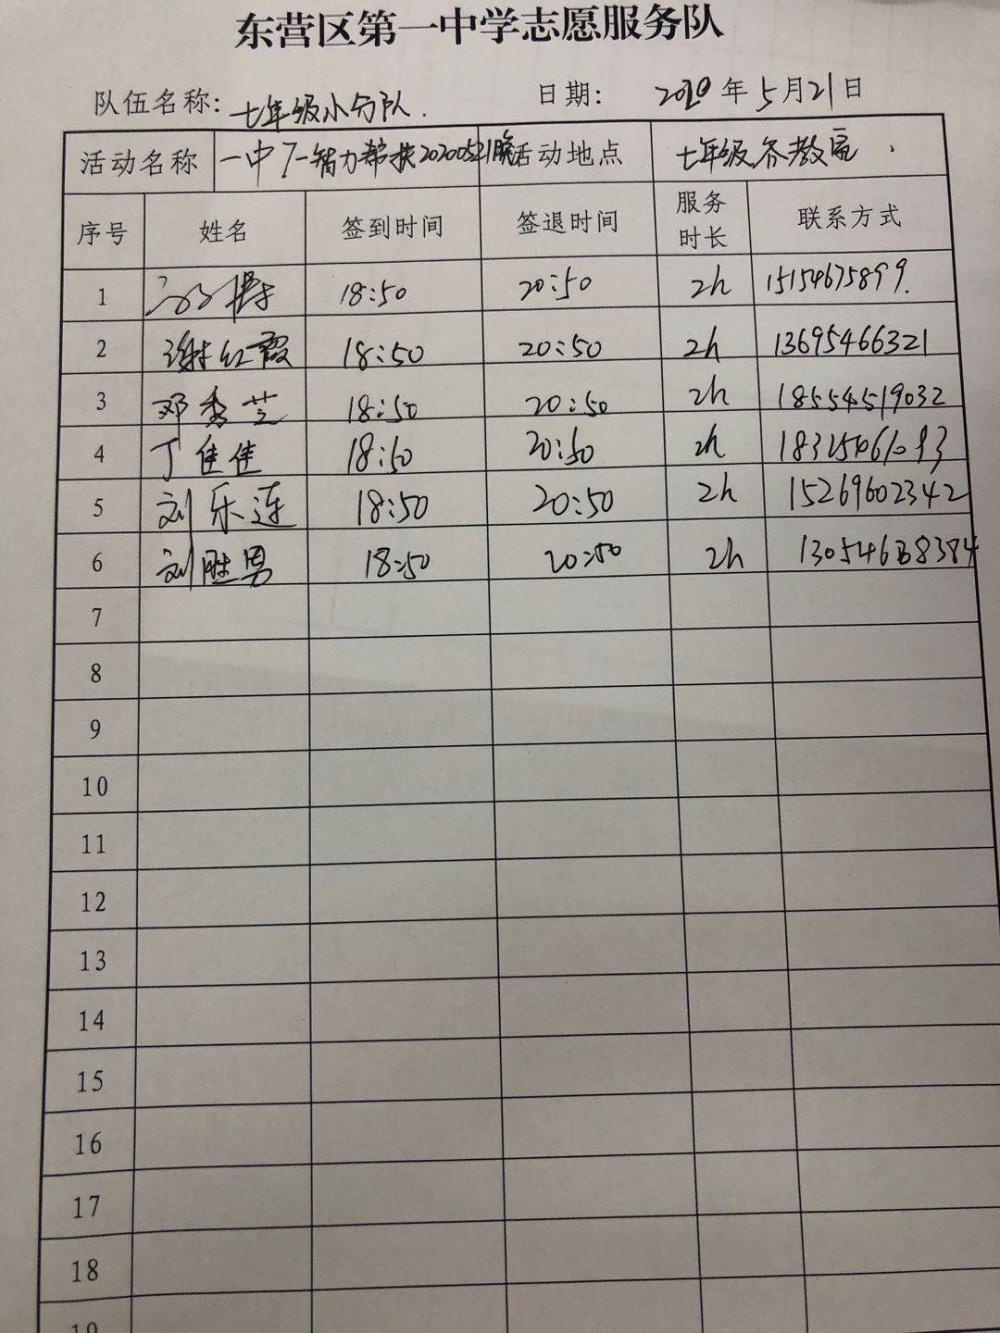 东营区第一中学志愿服务队
队伍名称: 七年级小分队. 日期: 2020年5月21日
活动名称 一中7一智力帮扶20200521晚 活动地点 七年级各教室.
序号 姓名 签到时间 签退时间 服务时长 联系方式
1 18:50 20:50 2h 15154675899.
2 谢红霞 18:50 20:50 2h 13695466321
3 邓秀芝 18:50 20:50 2h 18554519032
4 丁佳佳 18:50 20:50 2h
5 刘乐连 18:50 20:50 2h 15269602342
6 刘胜男 18:50 20:50 2h
7
8
9
10
11
12
13
14
15
16
17
18
19